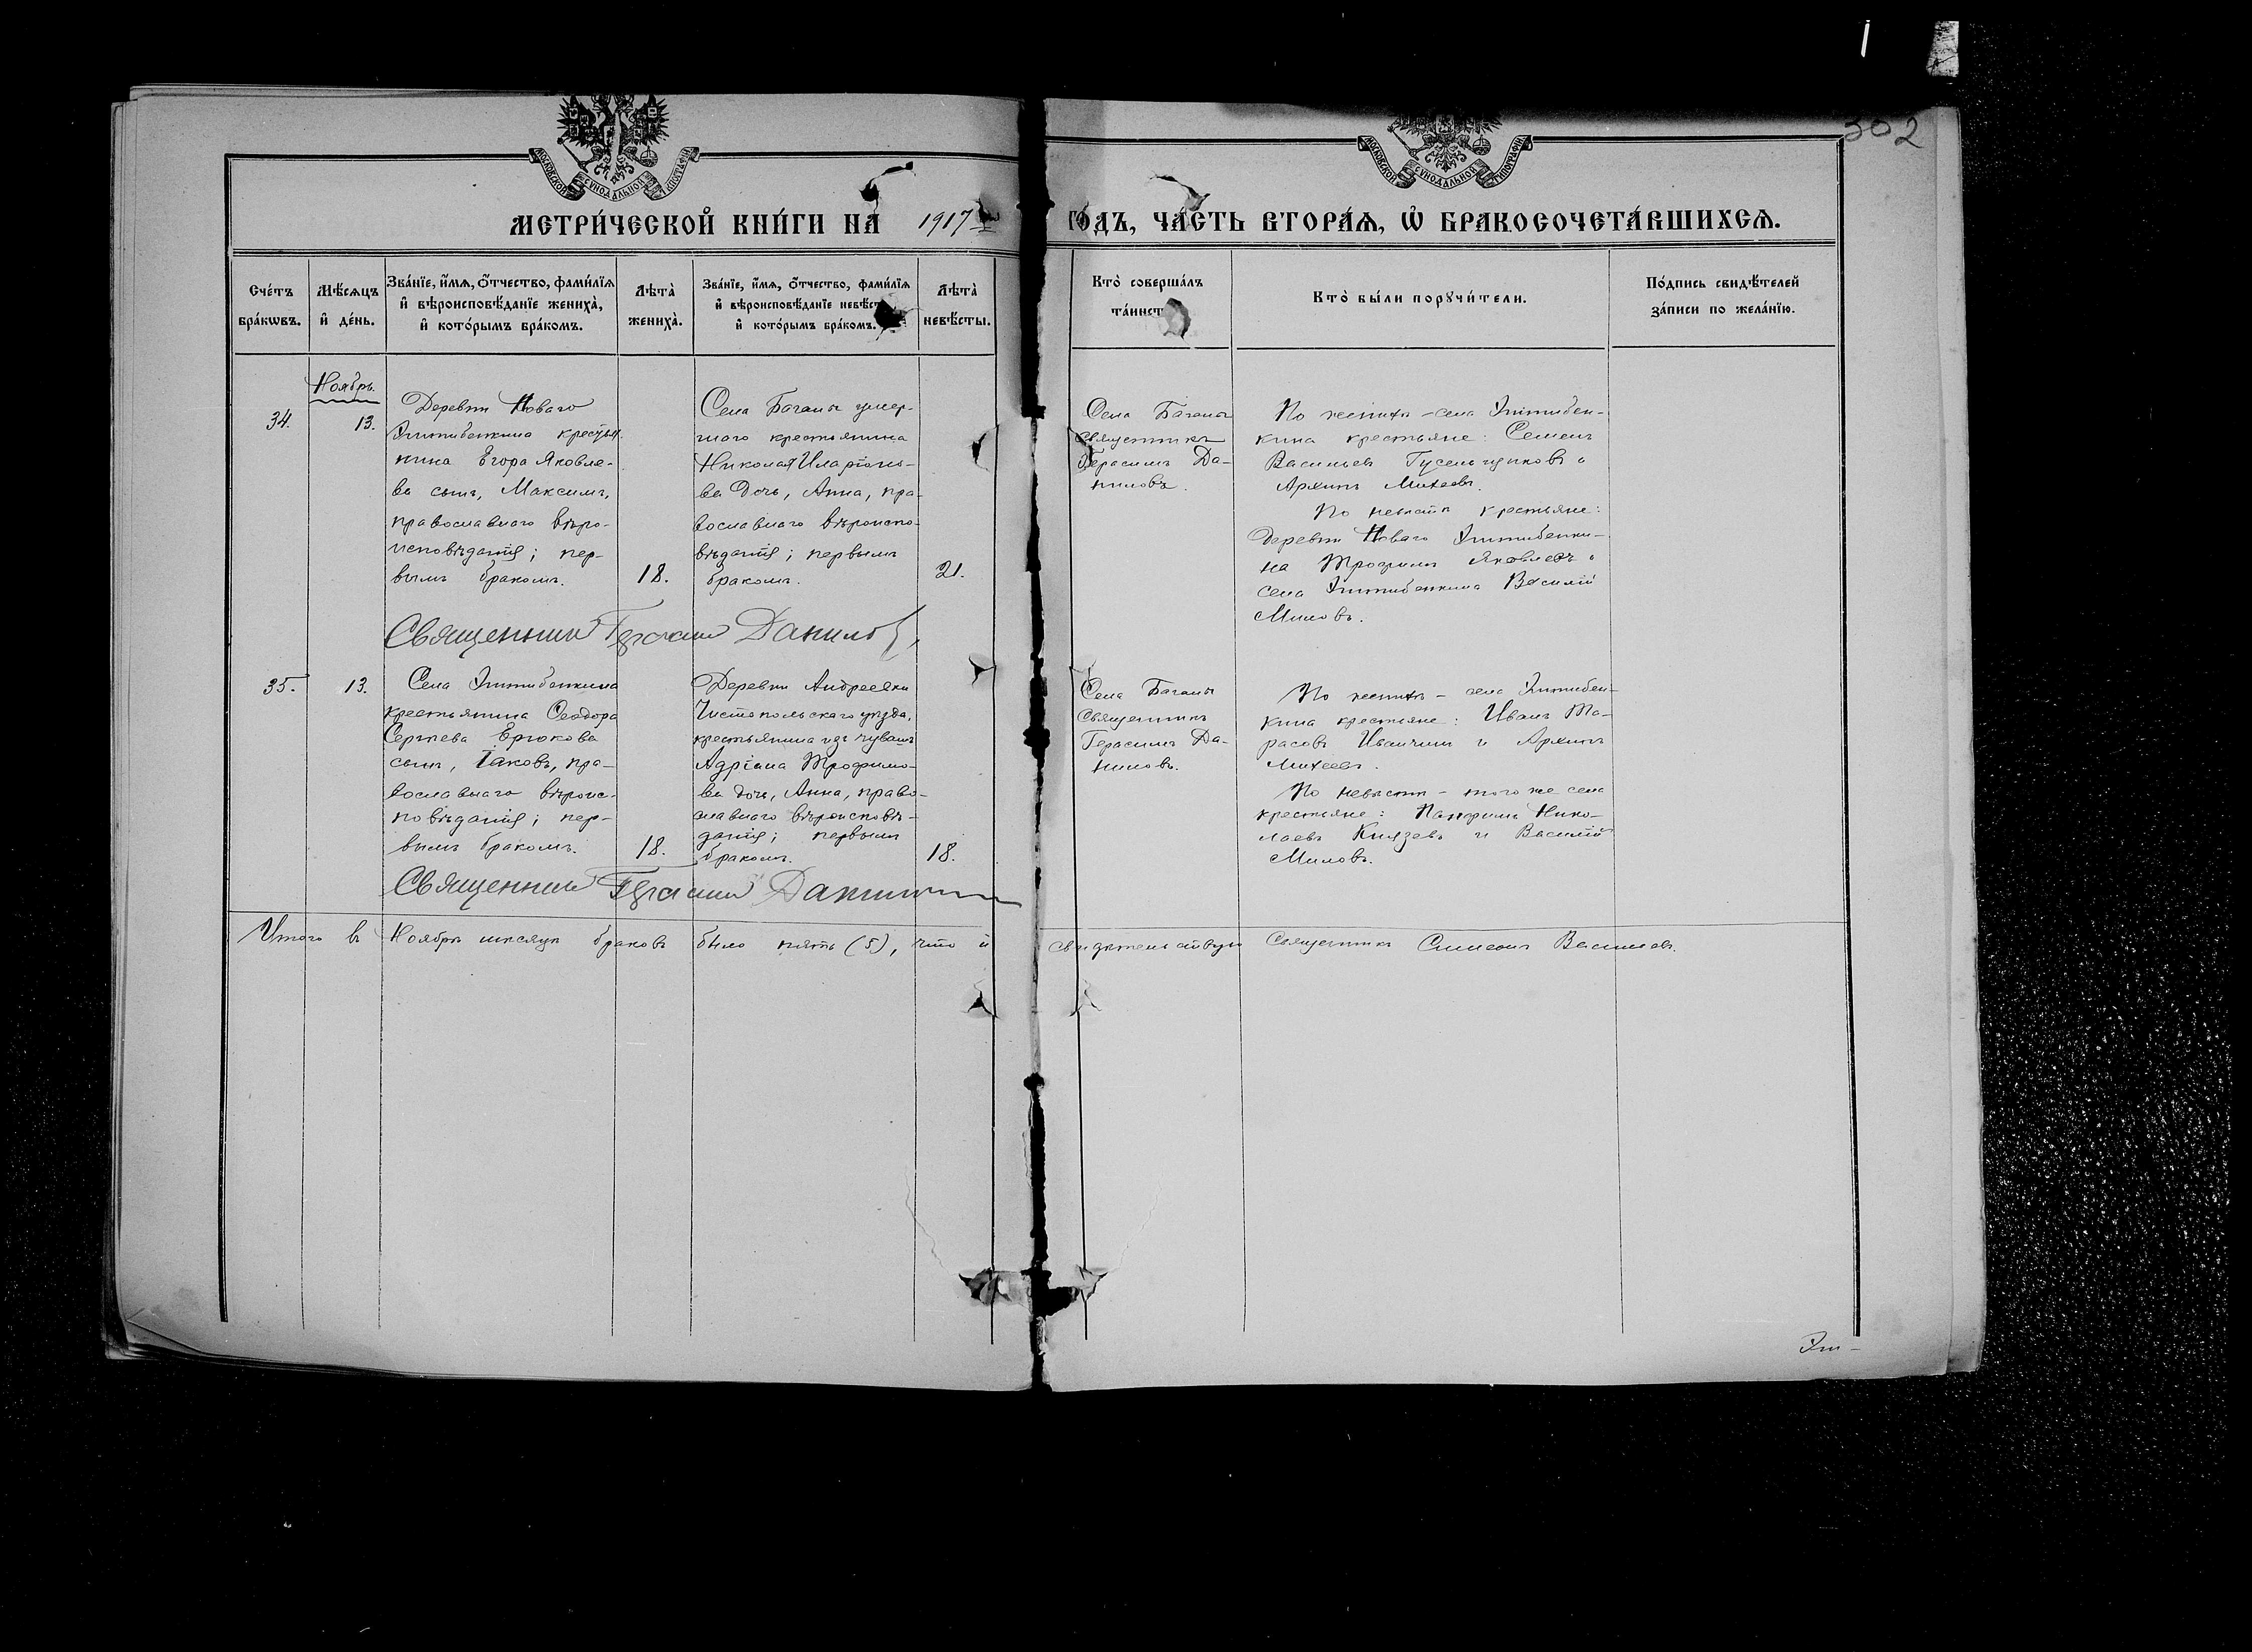 302
МОСКОВСКОЙ СѴНОДАЛЬНОЙ ТИПОГРАФІИ
МОСКОВСКОЙ СѴНОДАЛЬНОЙ ТИПОГРАФІИ
МЕТРИ́ЧЕСКОЙ КНИ́ГИ НА 1917 ГО́ДЪ, ЧА́СТЬ ВТОРА́Ѧ, Ѡ БРАКОСОЧЕТА́ВШИХСѦ.
Сче́тъ
бра́кѡвъ.
Мѣ́сѧцъ
и҆ де́нь.
Зва́нїе, и҆́мѧ, ѻ҆́тчество, фами́лїѧ
и҆ вѣроисповѣ́данїе жениха̀,
и҆ кото́рымъ бра́комъ.
Лѣта̀
жениха̀.
Зва́нїе, и҆́мѧ, ѻ҆́тчество, фами́лїѧ
и҆ вѣроисповѣ́данїе невѣ́ст
и҆ кото́рымъ бра́комъ.
Лѣта̀
невѣ́сты.
Кто̀ соверша́лъ
та́инст
Кто̀ бы́ли порꙋчи́тели.
По́дпись свидѣ́телей
за́писи по жела́нїю.
Ноябрь.
34.
13.
Деревни Новаго
Эштебенкина крестья-
нина Егора Яковле-
ва сынъ, Максимъ,
православнаго вѣро-
исповѣданія; пер-
вымъ бракомъ.
18.
Села Баганы умер-
шаго крестьянина
Николая Иларіоно-
ва дочь, Анна, пра-
вославнаго вѣроиспо-
вѣданія; первымъ
бракомъ.
21.
Села Баганы
священникъ
Герасимъ Да-
ниловъ.
По женихѣ - села Эштебен-
кина крестьяне: Семенъ
Васильевъ Гусельщиковъ и
Архипъ Михеевъ.
По невѣстѣ крестьяне:
деревни Новаго Эштебенки-
на Трофимъ Яковлевъ и
села Эштебенкина Василій
Миловъ.
Священникъ Герасимъ Данилов
35.
13.
Села Эштебенкина
крестьянина Ѳеодора
Сергѣева Ерюкова
сынъ, Іаковъ, пра-
вославнаго вѣроис-
повѣданія; пер-
вымъ бракомъ.
18.
Деревни Андреевки
Чистопольскаго уѣзда,
крестьянина изъ чувашъ
Адріана Трофимо-
ва дочь, Анна, право-
славнаго вѣроисповѣ-
данія; первымъ
бракомъ.
18.
Села Баганы
священникъ
Герасимъ Да-
ниловъ.
По женихѣ - села Эштебен-
кина крестьяне: Иванъ Та-
расовъ Иваичкин и Архипъ
Михеевъ.
По невѣстѣ - того же села
крестьяне: Панфилъ Нико-
лаевъ Князевъ и Василій
Миловъ.
Священникъ Герасимъ Данилов
Итого въ Ноябрѣ мѣсяцѣ браковъ было пять (5), что и свидѣтельствую Священникъ Симеонъ Васильевъ.
Эш-